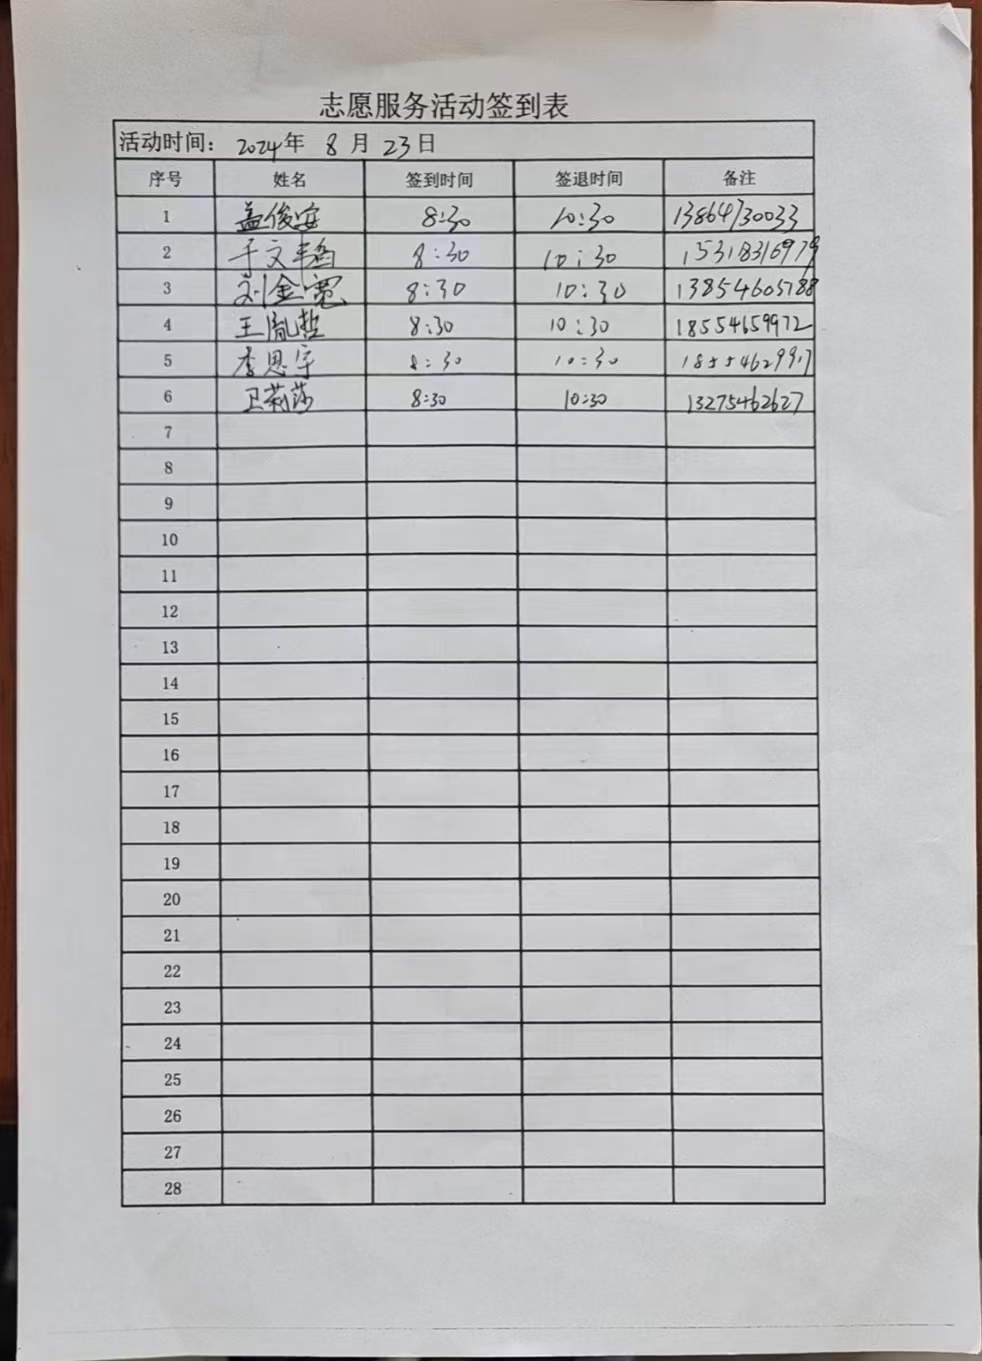 志愿服务活动签到表
活动时间： 2024年 8 月 23日
序号 姓名 签到时间 签退时间 备注
1 孟俊安 8:30 10:30 13864730033
2 于文 8:30 10:30 15318316979
3 刘金宽 8:30 10:30 13854605788
4 王胤哲 8:30 10:30 18554659972
5 李恩宇 8:30 10:30 18554629917
6 卫莉莎 8:30 10:30 13275462627
7
8
9
10
11
12
13
14
15
16
17
18
19
20
21
22
23
24
25
26
27
28